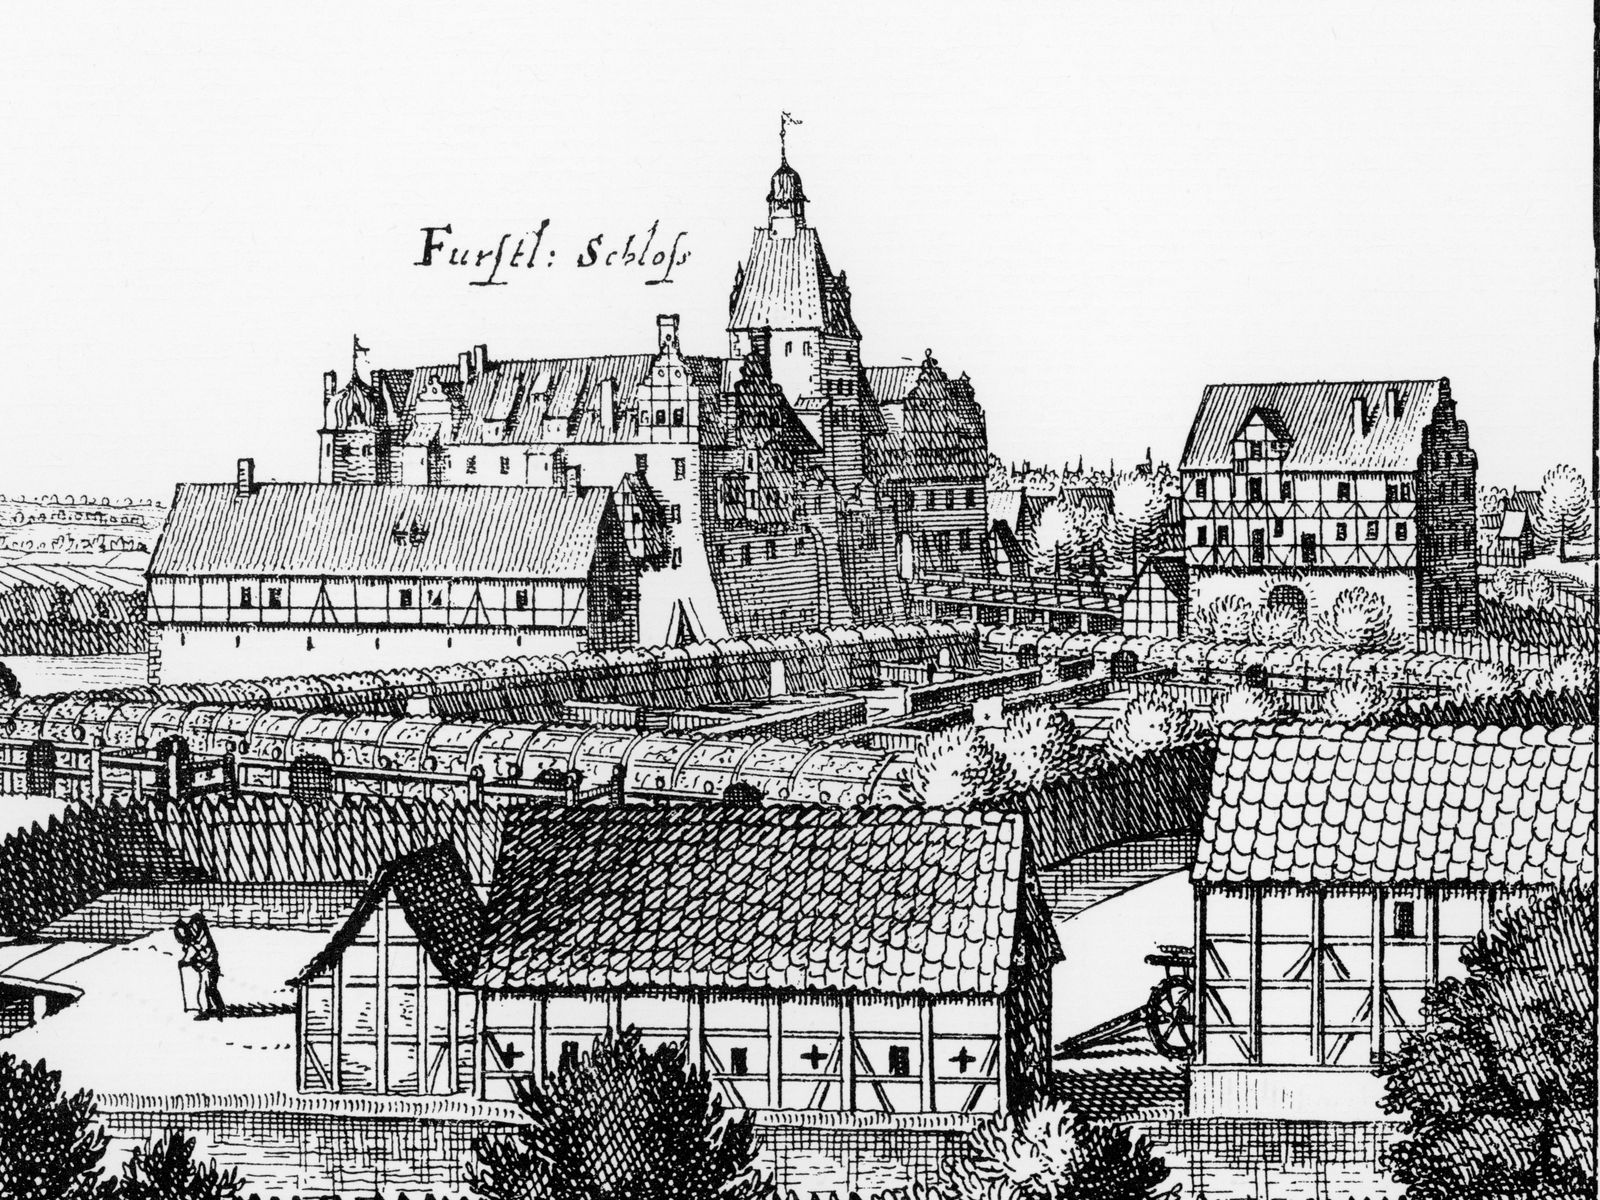 Furſtl: Schloſs